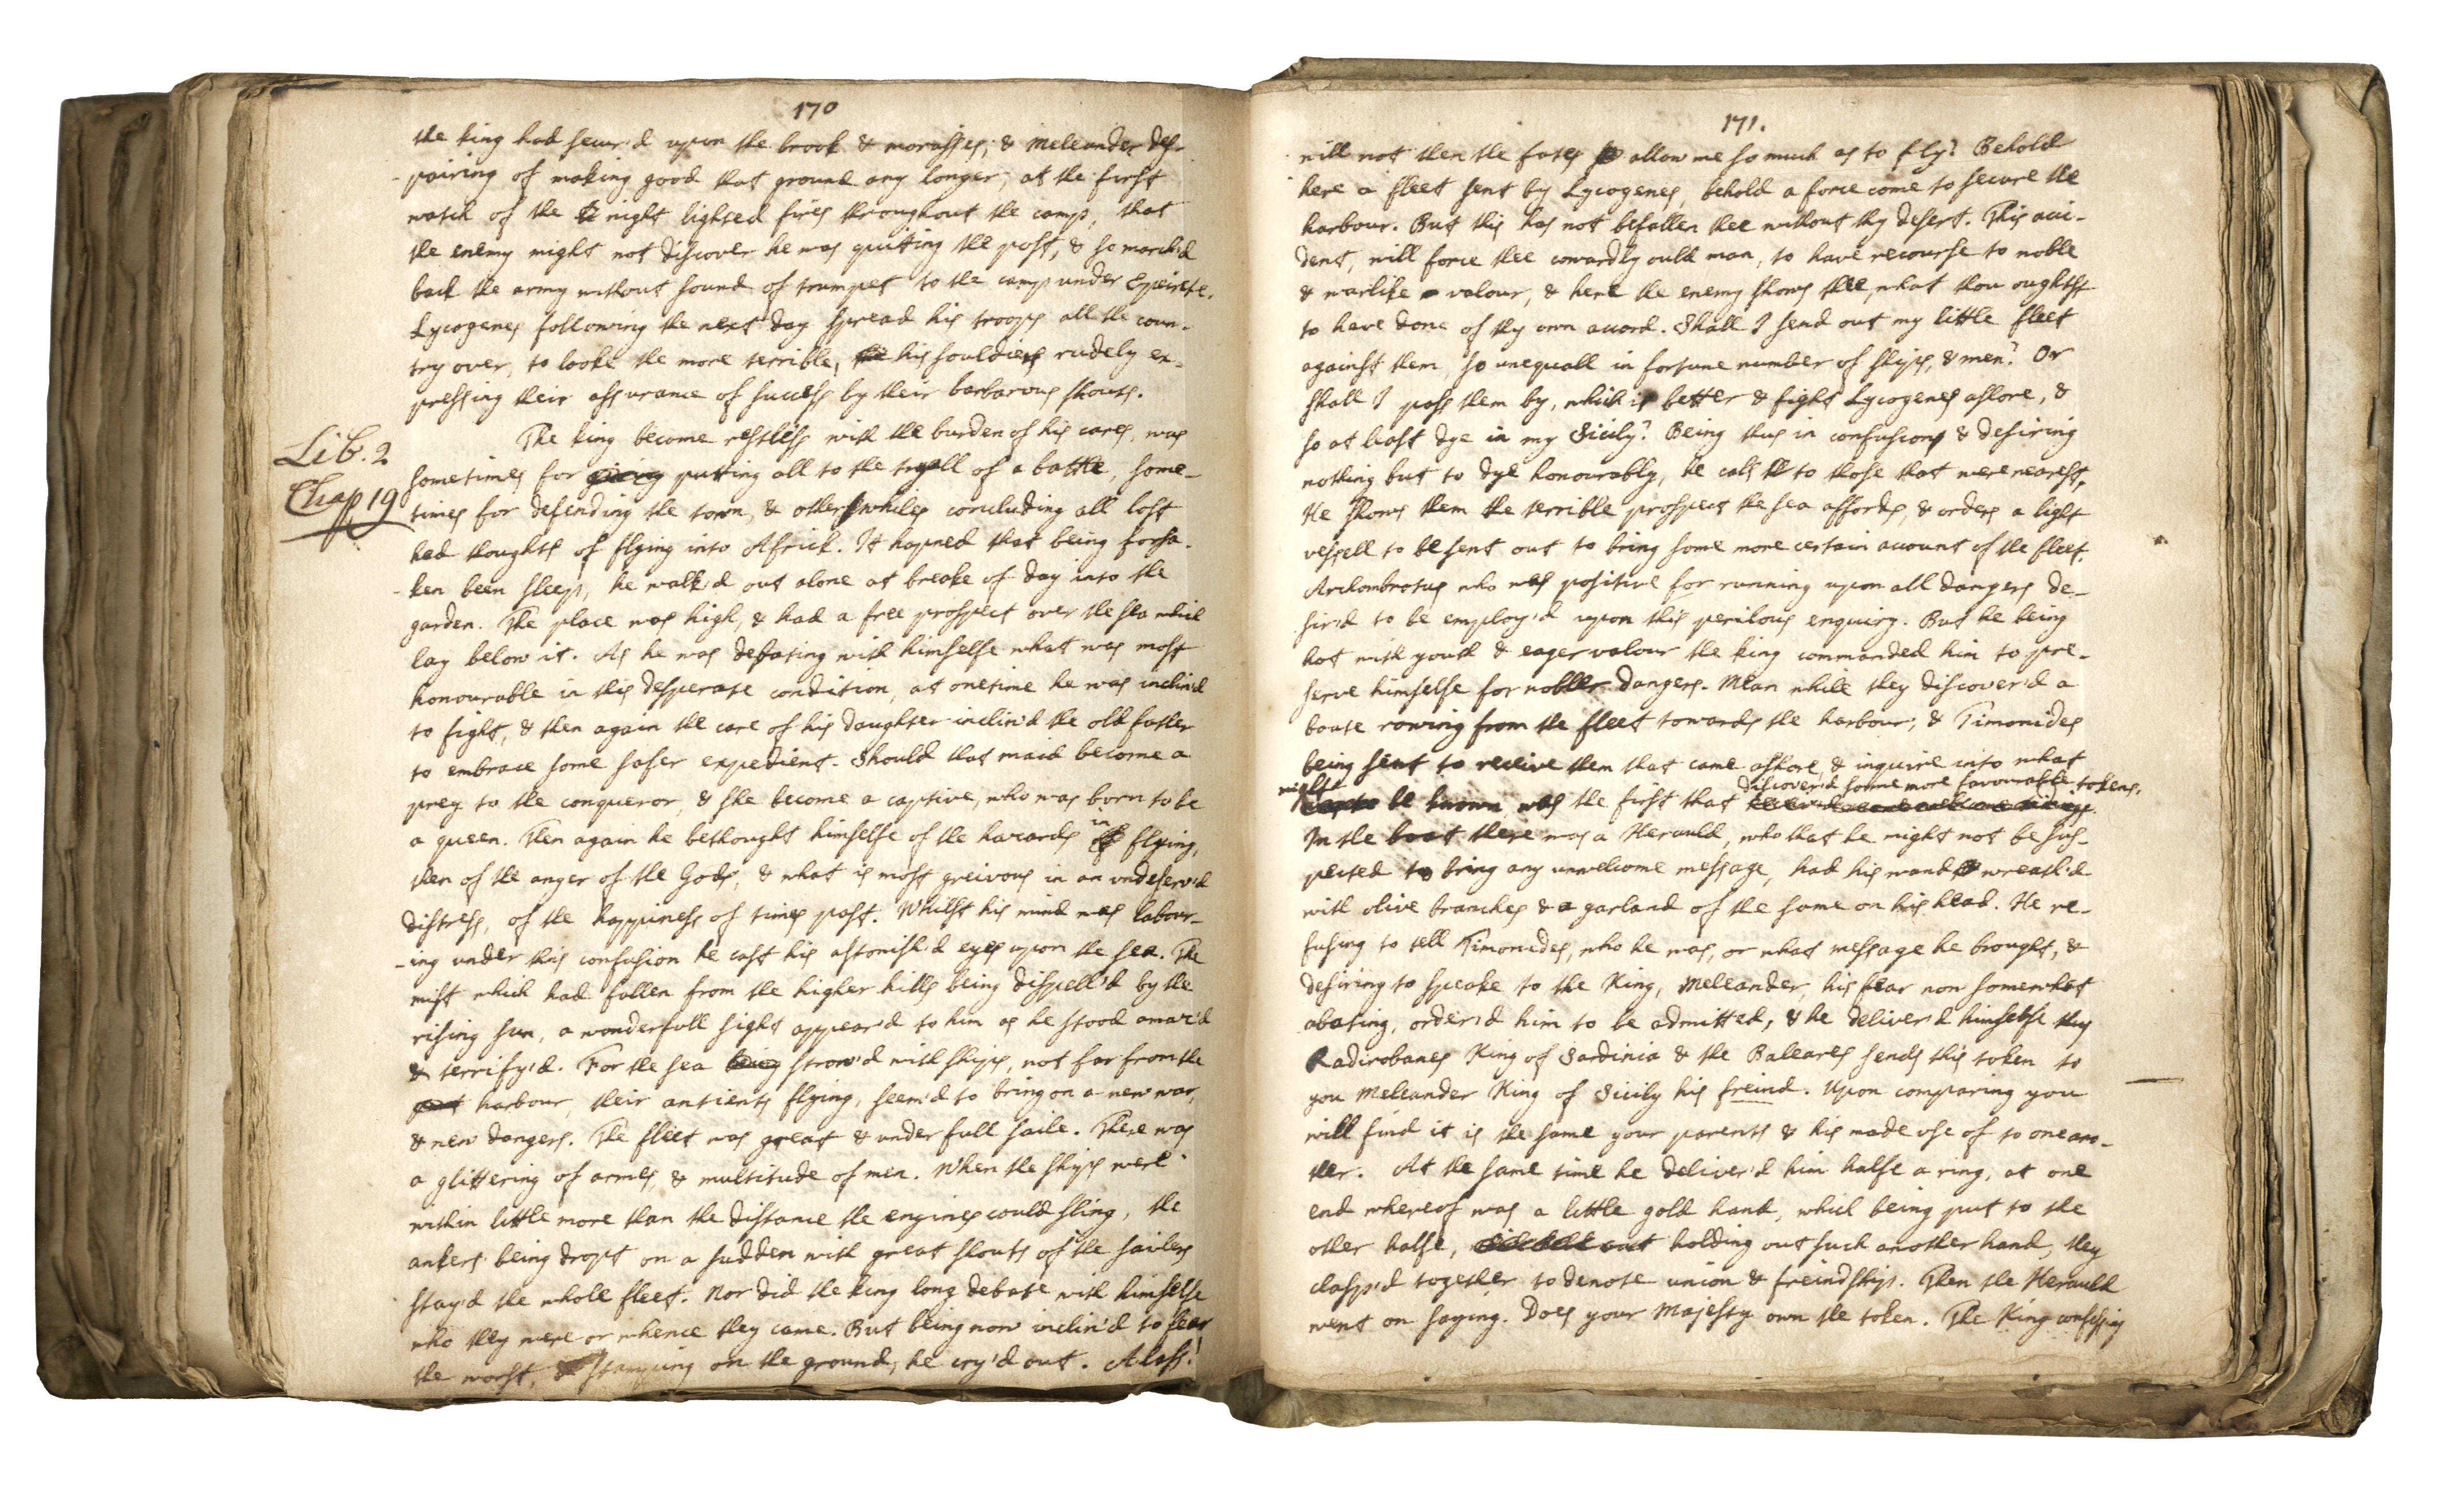 170
the king had secur'd upon the brook & morasses; & Meleander des-
-pairing of making good that ground any longer, at the first
watch of the night lighted fires throughout the camp, that
the enemy might not discover he was quitting the post, & so march'd
back the army without sound of trumpet to the camp under Epeircte.
Lycogenes following the next day spread his troops all the coun-
try over, to looke the more terrible, his souldiers rudely ex-
pressing their assurance of success by their barbarous shouts.
Lib. 2
Chap 19
The king become restless with the burden of his cares, was
sometimes for giving putting all to the tryall of a battle, some-
times for defending the town, & otherwhiles concluding all lost
had thoughts of flying into Africk. It hapned that being forsa-
-ken been sleep, he walk'd out alone at breake of day into the
garden. The place was high, & had a free prospect over the sea which
lay below it. As he was debating with himselfe what was most
honourable in this desperate condition, at onetime he was inclin'd
to fight, & then again the care of his daughter inclin'd the old father
to embrace some safer expedient. Should that maid become a
prey to the conqueror, & she become a captive, who was born to be
a queen. Then again he bethought himselfe of the hazards of in flying,
then of the anger of the Gods, & what is most greivous in an undeserv'd
distress, of the happiness of times past. Whilst his mind was labour-
-ing under this confusion he cast his astonish'd eyes upon the sea. The
mist which had fallen from the higher hills being dispell'd by the
rising sun, a wonderfull sight appear'd to him as he stood amaz'd
& terrify'd. For the sea being strow'd with ships, not far from the
harbour, their antients flying, seem'd to bring on a new war,
& new dangers. The fleet was great & under full saile. There was
a glittering of armes, & multitude of men. When the ships were
within little more than the distance the engines could sling, the
ankers being dropt on a sudden with great shouts of the sailers
stay'd the whole fleet. Nor did the king long debate with himselfe
who they were or whence they came. But being now inclin'd to fear
the worst, & stamping on the ground, he cry'd out. Alass!
171.
will not then the fates allow me so much as to fly? Behold
here a fleet sent by Lycogenes, behold a force come to secure the
harbour. But this has not befallen thee without thy desert. This acci-
dent, will force thee cowardly ould man, to have recourse to noble
& warlike valour, & here the enemy shows thee, what thou oughtst
to have done of thy own accord. Shall I send out my little fleet
against them, so unequall in fortune number of ships, & men? Or
shall I pass them by, which is better & fight Lycogenes ashore, &
so at least dye in my Sicily? Being thus in confusion & desiring
nothing but to dye honourably, he calls to those that were nearest.
He shows them the terrible prospect the sea affords, & orders a light
vessell to be sent out to bring some more certain account of the fleet.
Archombrotus who was positive for running upon all dangers de-
sir'd to be employ'd upon this perilous enquiry. But he being
hot with youth & eager valour the king commanded him to pre-
serve himselfe for nobler dangers. Mean while they discover'd a
boate rowing from the fleet towards the harbour; & Timonides
being sent to receive them that came ashore, & inquire into what
might be known was the first that discover'd some more favourable tokens.
In the boat there was a Herauld, who that he might not be sus-
pected to bring any unwelcome message, had his wand wreath'd
with olive branches & a garland of the same on his head. He re-
fusing to tell Timonides, who he was, or what message he brought, &
desiring to speake to the King, Meleander, his fear now somewhat
abating, order'd him to be admitted, & he deliver'd himselfe thus
Radirobanes King of Sardinia & the Baleares sends this token to
you Meleander King of Sicily his freind. Upon comparing you
will find it is the same your parents & his made use of to one ano-
ther. At the same time he deliver'd him halfe a ring, at one
end whereof was a little gold hand, which being put to the
other halfe, holding out such another hand, they
clasp'd together to denote union & freindship. Then the Herauld
went on saying. Does your Majesty own the token. The King confessing